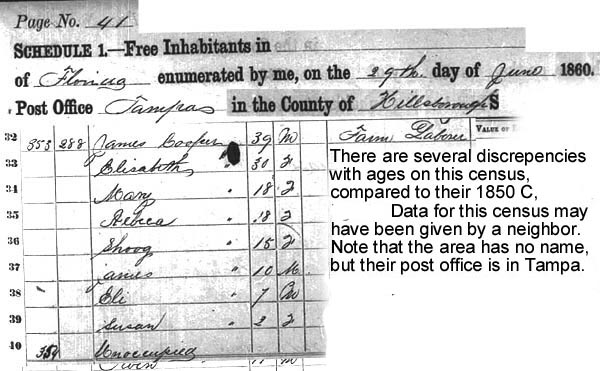 Page No. 41
SCHEDULE 1.—Free Inhabitants in
of Florida enumerated by me, on the 29th day of June 1860.
Post Office Tampa in the County of Hillsborough
32 353 288 James Cooper 39 M Farm Laborer VALUE OF
33 Elisabeth " 30 F
34 Mary " 18 F
35 " 18 F
36 " 15 F
37 James " 10 M
38 Eli " 7 M
39 Susan " 2 F
40 354 Unoccupied
There are several discrepencies
with ages on this census,
compared to their 1850 C,
Data for this census may
have been given by a neighbor.
Note that the area has no name,
but their post office is in Tampa.